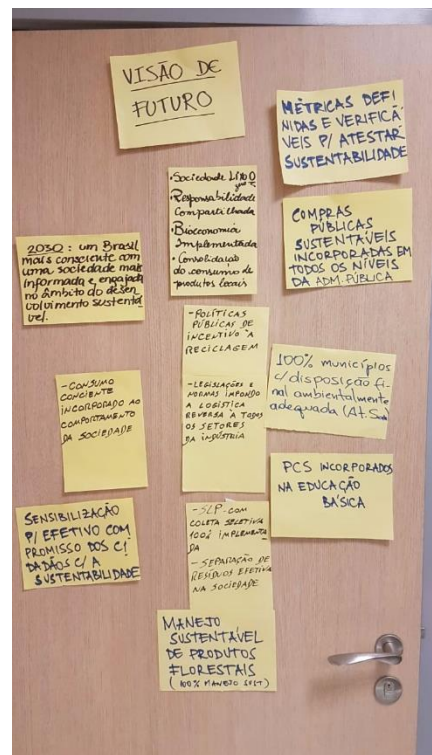 VISÃO DE
FUTURO
MÉTRICAS DEFI
NIDAS E VERIFICÁ
VEIS P/ ATESTAR
SUSTENTABILIDADE
• Sociedade Lixo 0
• Responsabilidade
Compartilhada
• Bioeconomia
Implementada
• Consolidação
do consumo de
produtos locais
COMPRAS
PÚBLICAS
SUSTENTÁVEIS
INCORPORADAS EM
TODOS OS NÍVEIS
DA ADM. PÚBLICA
2030: um Brasil
mais consciente com
uma sociedade mais
informada e engajada
no âmbito do desen
volvimento sustentá
vel.
- POLÍTICAS
PÚBLICAS DE
INCENTIVO À
RECICLAGEM
100% municípios
c/ disposição fi
nal ambientalmente
adequada
- CONSUMO
CONCIENTE
INCORPORADO AO
COMPORTAMENTO
DA SOCIEDADE
- LEGISLAÇÕES E
NORMAS IMPONDO
A LOGÍSTICA
REVERSA À TODOS
OS SETORES
DA INDÚSTRIA
PCS INCORPORADOS
NA EDUCAÇÃO
BÁSICA
SENSIBILIZAÇÃO
P/ EFETIVO COM
PROMISSO DOS CI
DADÃOS C/ A
SUSTENTABILIDADE
- SLP COM
COLETA SELETIVA
100% IMPLEMENTA
DA
- SEPARAÇÃO DE
RESÍDUOS EFETIVA
NA SOCIEDADE
MANEJO
SUSTENTÁVEL
DE PRODUTOS
FLORESTAIS
(100% MANEJO SUST)